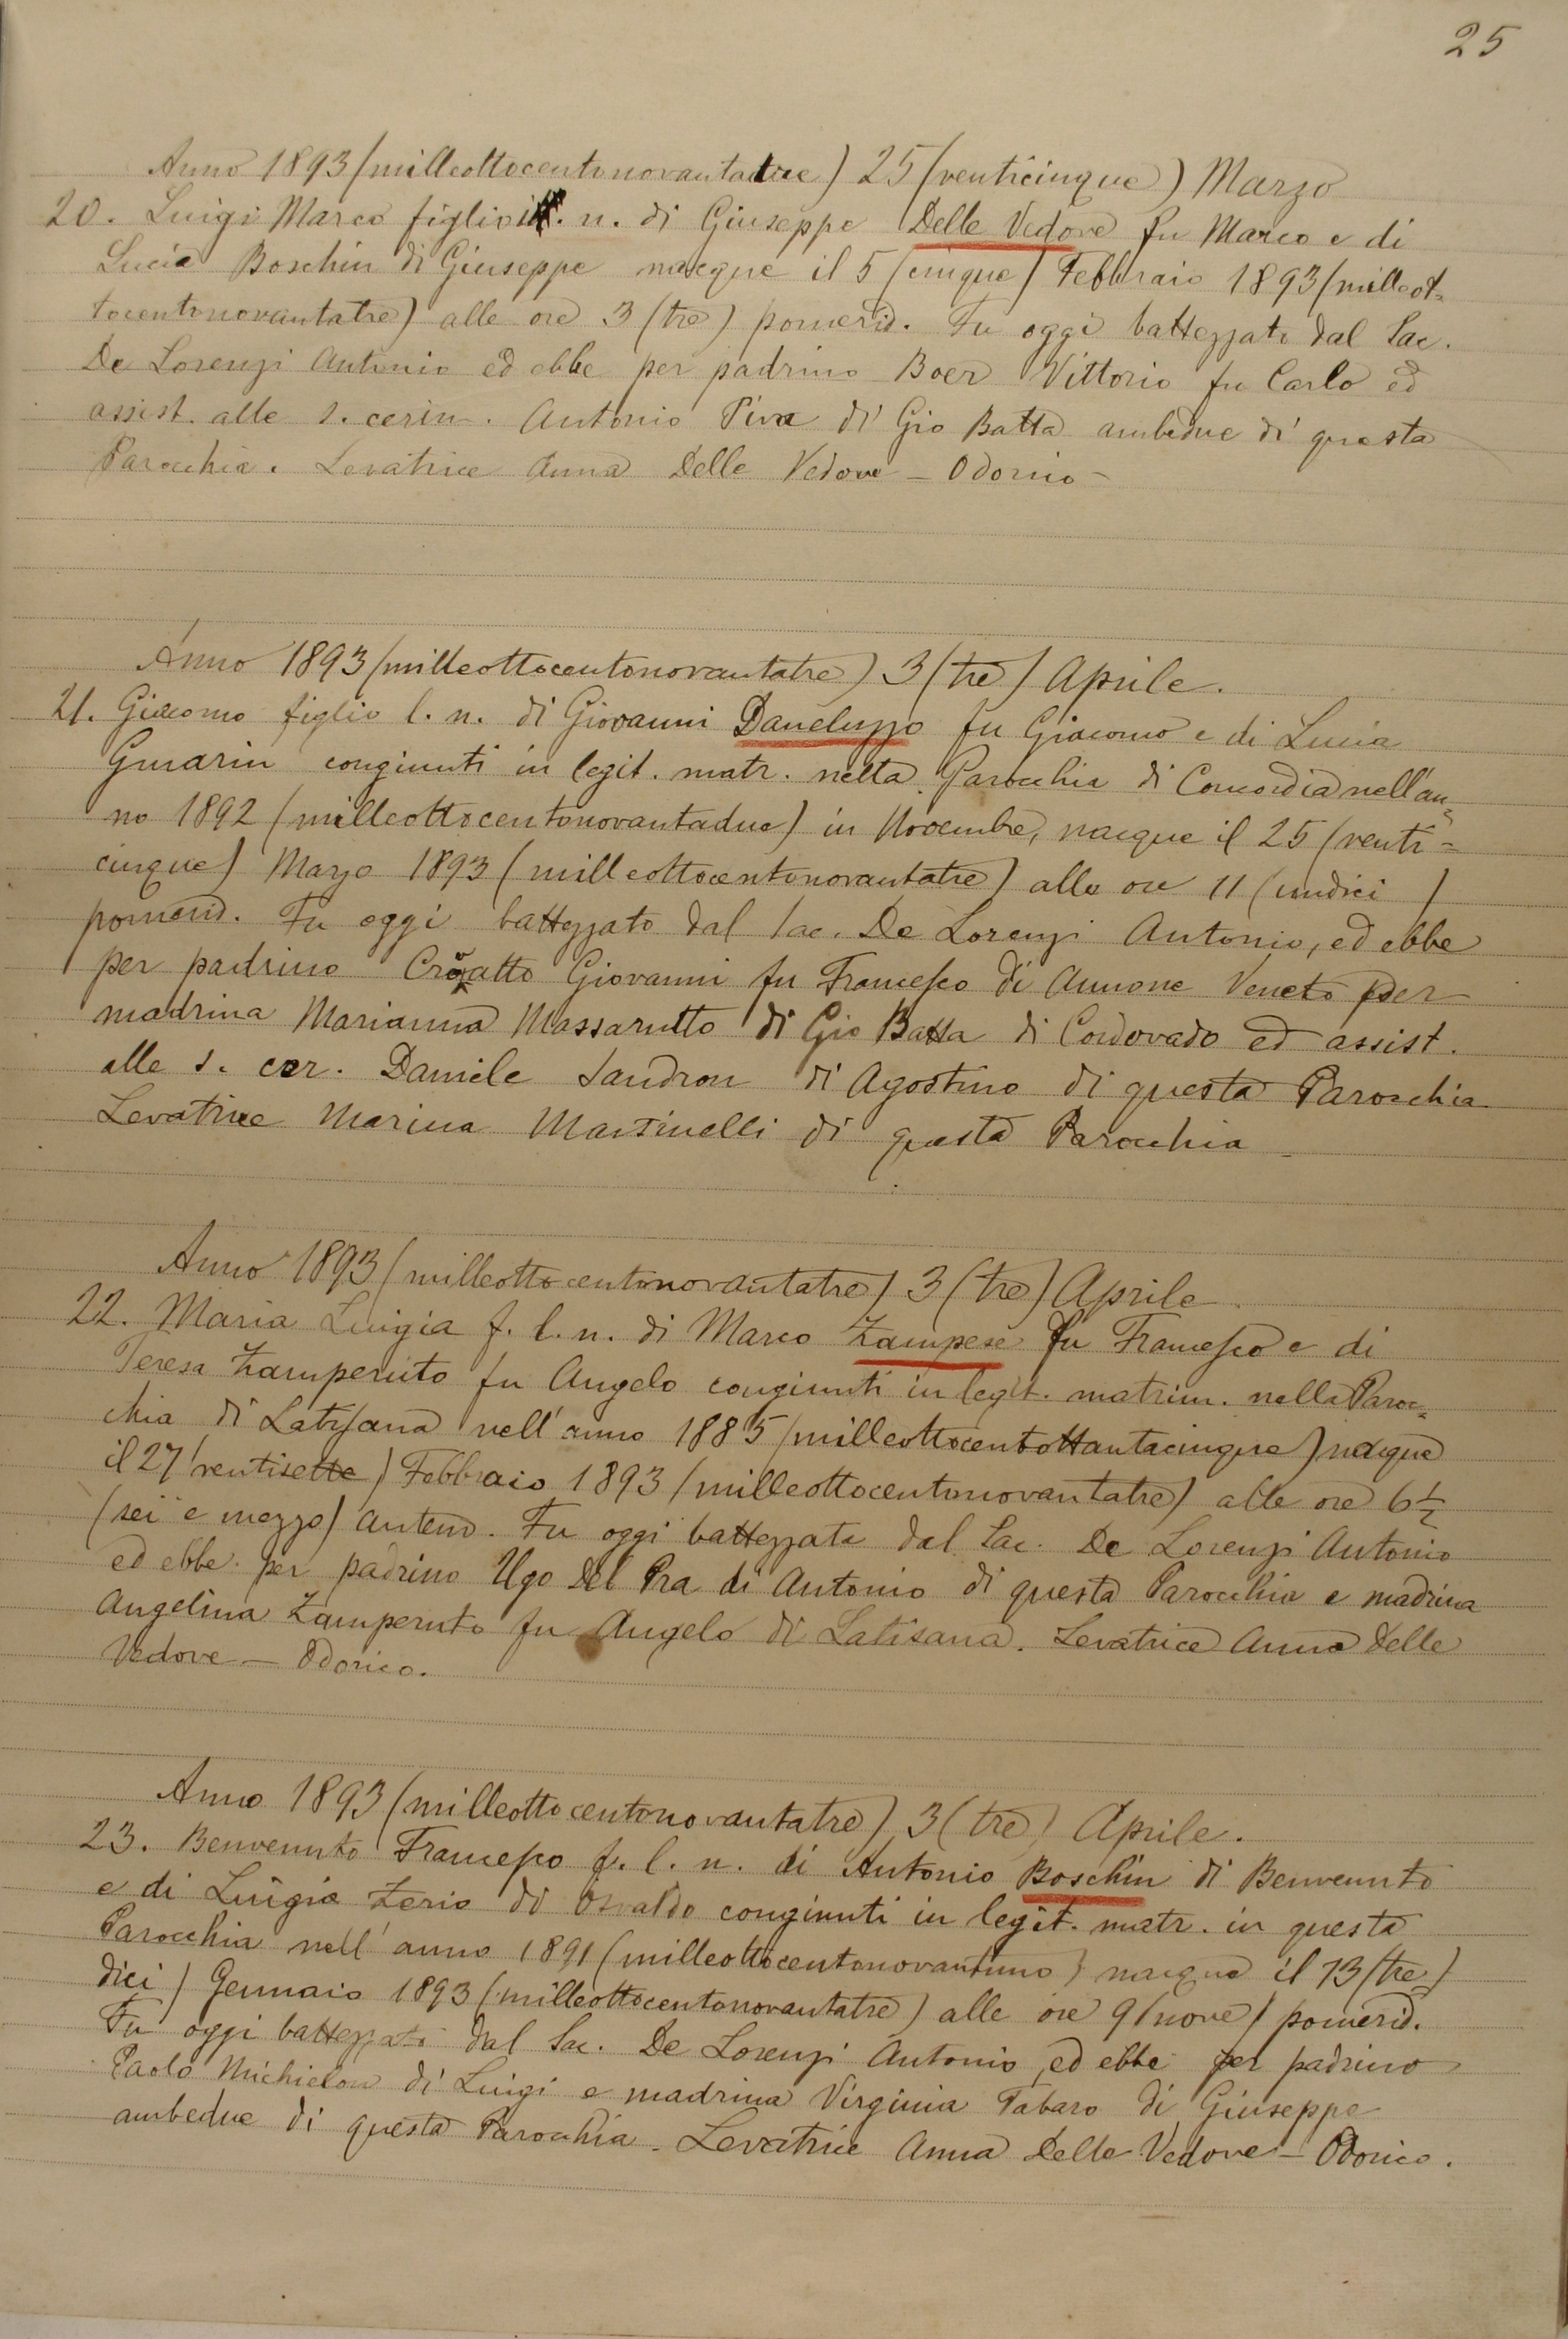 25
Anno 1893 (milleottocentonovantatre) 25 (venticinque) Marzo
20. Luigi Marco figlio n. di Giuseppe Delle Vedove fu Marco e di
Lucia Boschin di Giuseppe nacque il 5 (cinque) Febbraio 1893 (milleot=
tocentonovantatre) alle ore 3 (tre) pomerid. Fu oggi battezzato dal Sac.
De Lorenzi Antonio ed ebbe per padrino Boer Vittorio fu Carlo ed
assist. alle s. cerim. Antonio Piva di Gio Batta ambedue di questa
Parochia. Levatrice Anna Delle Vedove – Odorico –
Anno 1893 (milleottocentonovantatre) 3 (tre) Aprile.
21. Giacomo figlio l. n. di Giovanni Daneluzzo fu Giacomo e di Lucia
Gurarin congiunti in legit. matr. nella Parochia di Concordia nell'an=
no 1892 (milleottocentonovantadue) in Novembre, nacque il 25 (venti=
cinque) Marzo 1893 (milleottocentonovantatre) alle ore 11 (undici)
pomerid. Fu oggi battezzato dal Sac. De Lorenzi Antonio, ed ebbe
per padrino Croatto Giovanni fu Francesco di Annone Veneto per
madrina Marianna Massarutto di Gio Batta di Cordovado ed assist.
alle s. cer. Daniele Sandron di Agostino di questa Parochia
Levatrice Marina Martinelli di questa Parochia
Anno 1893 (milleottocentonovantatre) 3 (tre) Aprile
22. Maria Luigia f. l. n. di Marco Zampese fu Francesco e di
Teresa Zamperuto fu Angelo congiunti in legit. matrim. nella Paroc=
chia di Latisana nell'anno 1885 (milleottocentottantacinque) nacque
il 27 (ventisette) Febbraio 1893 (milleottocentonovantatre) alle ore 6½
(sei e mezzo) antend. Fu oggi battezzata dal Sac. De Lorenzi Antonio
ed ebbe per padrino Ugo Del Pra di Antonio di questa Parochia e madrina
Angelina Zamperuto fu Angelo di Latisana. Levatrice Anna Delle
Vedove – Odorico.
Anno 1893 (milleottocentonovantatre) 3 (tre) Aprile.
23. Benvenuto Francesco f. l. n. di Antonio Boschin di Benvenuto
e di Luigia Zerio di Osvaldo congiunti in legit. matr. in questa
Parocchia nell'anno 1891 (milleottocentonovantuno) nacque il 13 (tre=
dici) Gennaio 1893 (milleottocentonovantatre) alle ore 9 (nove) pomerid.
Fu oggi battezzato dal Sac. De Lorenzi Antonio, ed ebbe per padrino
Paolo Michielon di Luigi e madrina Virginia Tabaro di Giuseppe
ambedue di questa Parochia. Levatrice Anna Delle Vedove – Odorico.